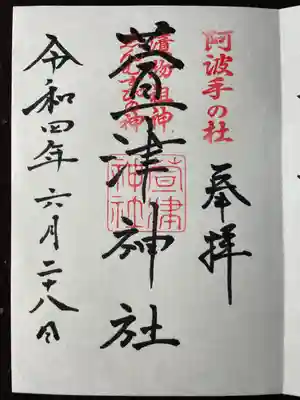 阿波手の杜
奉拝
漬物祖神
萱津神社
萱津
神社
令和四年六月二十八日